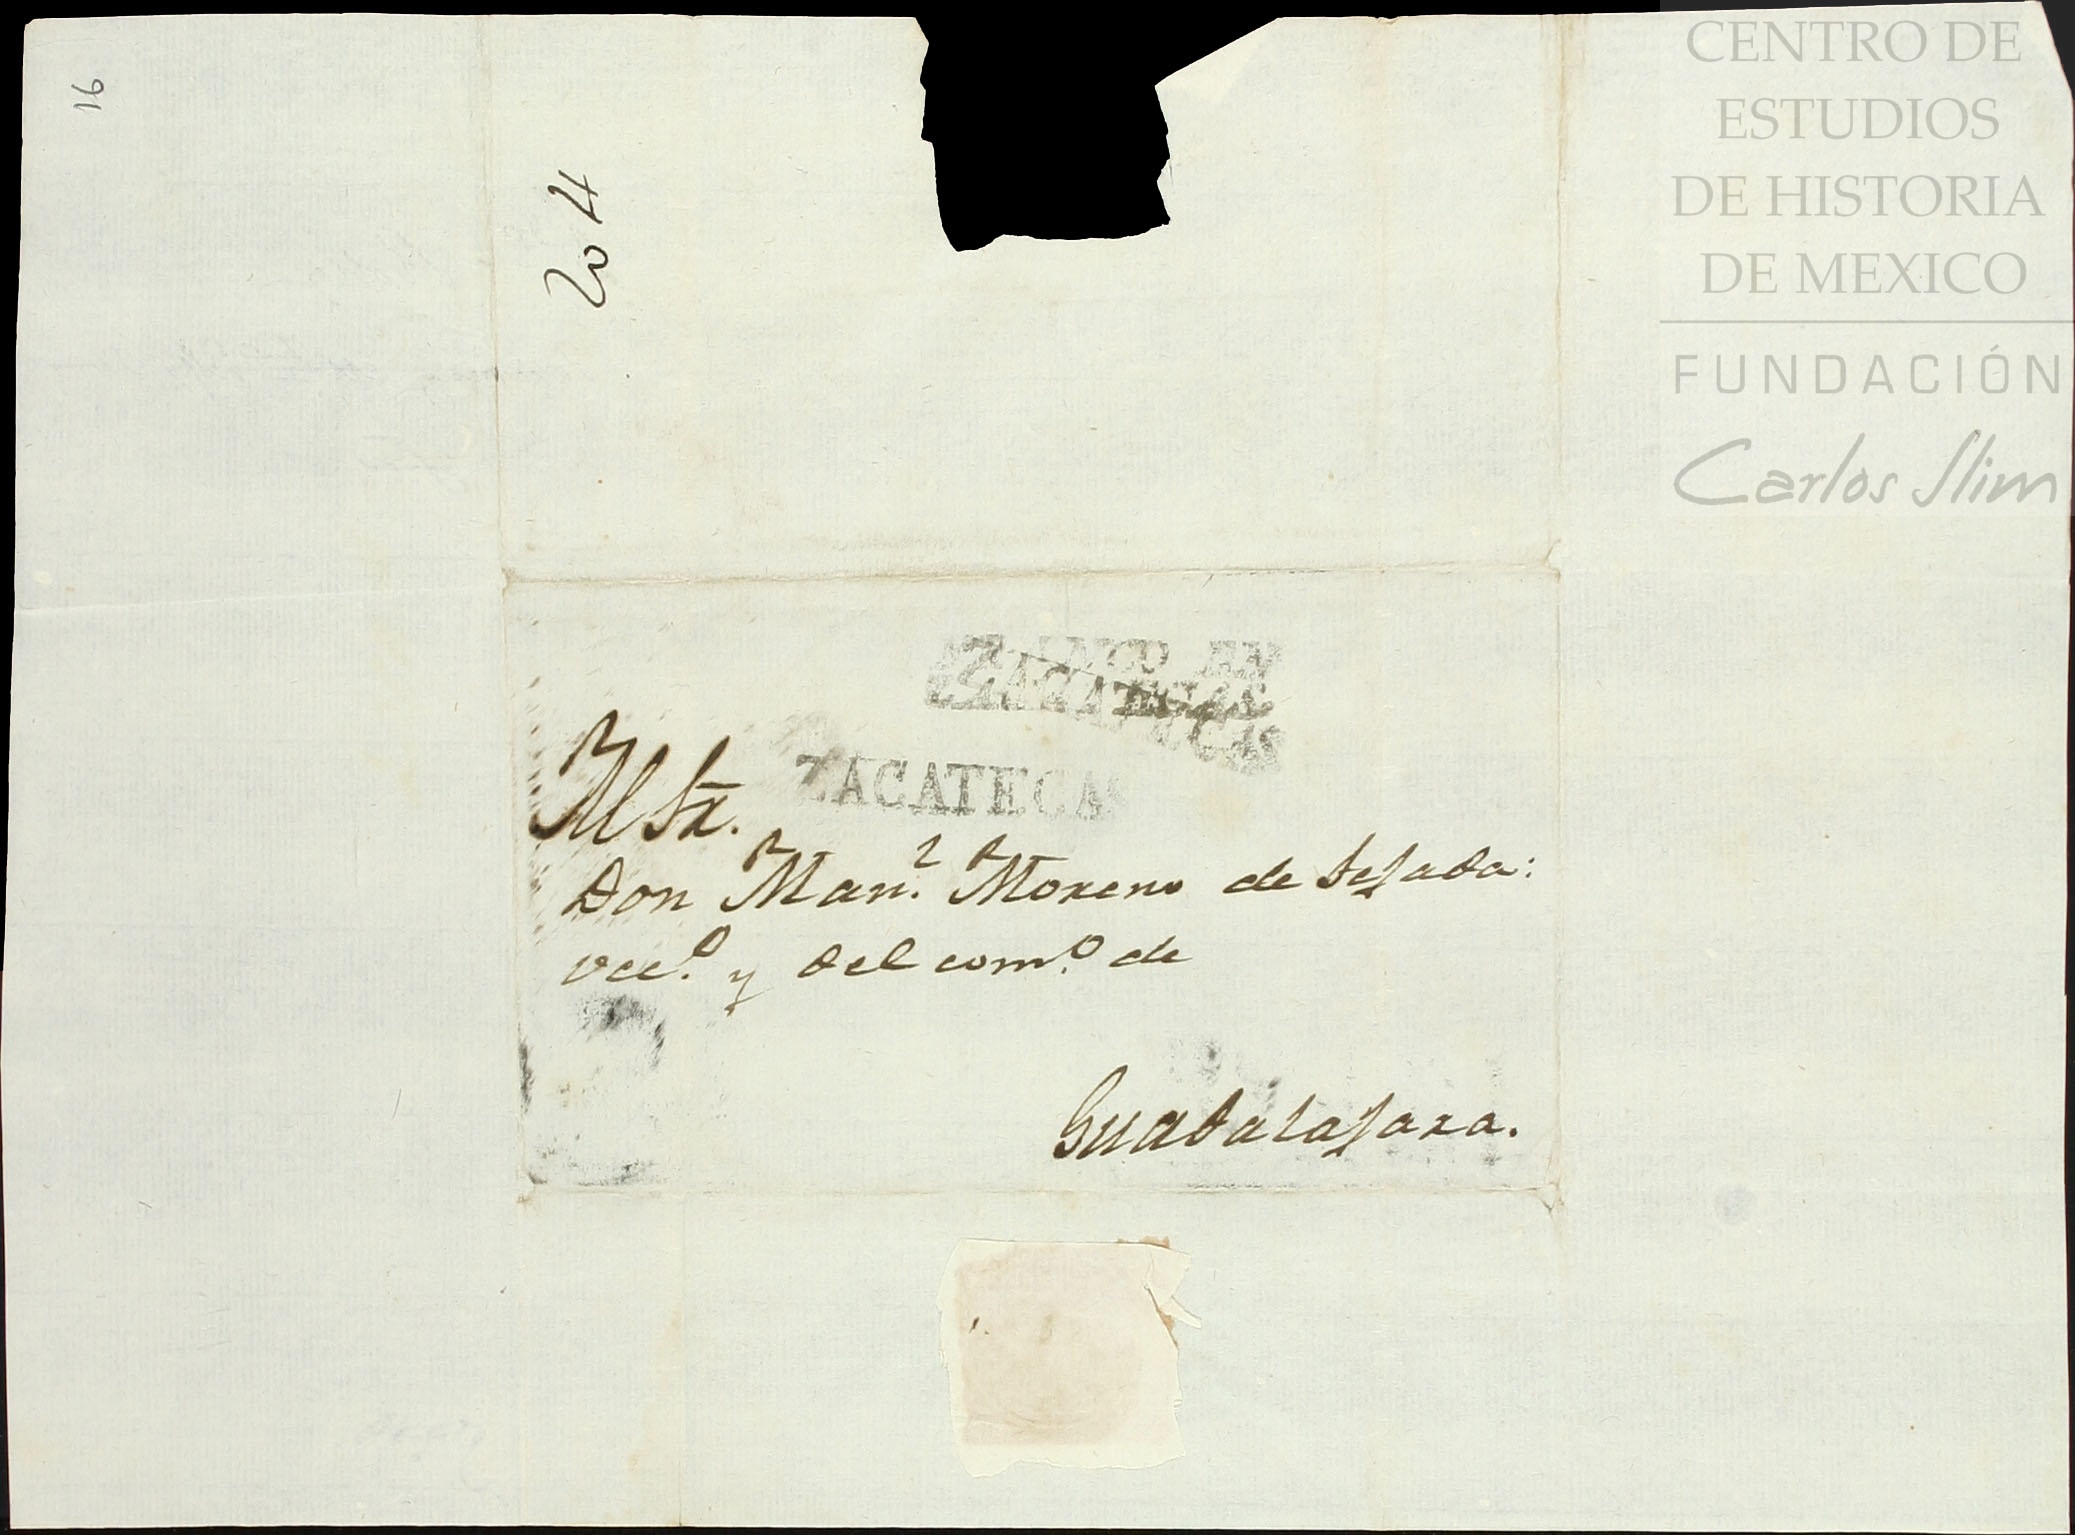 16
204
CENTRO DE
ESTUDIOS
DE HISTORIA
DE MEXICO
FUNDACIÓN
Carlos Slim
FRANCO EN
ZACATECAS
ZACATECAS
Al Sr.
Don Man.l Moreno de Tejada:
vec.o y del com.o de
Guadalajara.